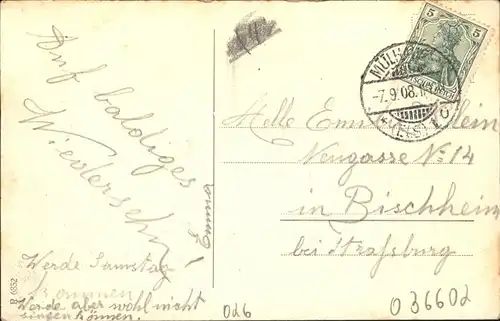 Auf baldiges
Wiedersehn!
Emma
Werde Samstag
kommen
Werde aber wohl nicht
singen können.
R 6552
5
MÜLH
-7.9.08.
(ELS)
Melle Emma
Neugasse No 14
in Bischheim
bei Straßburg
026
036602